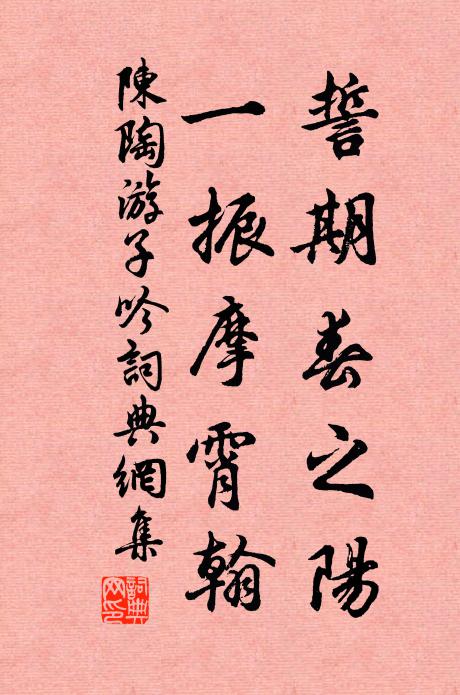 誓期春之陽
一振摩霄翰
陳陶游子吟詞典網集
詞典網印